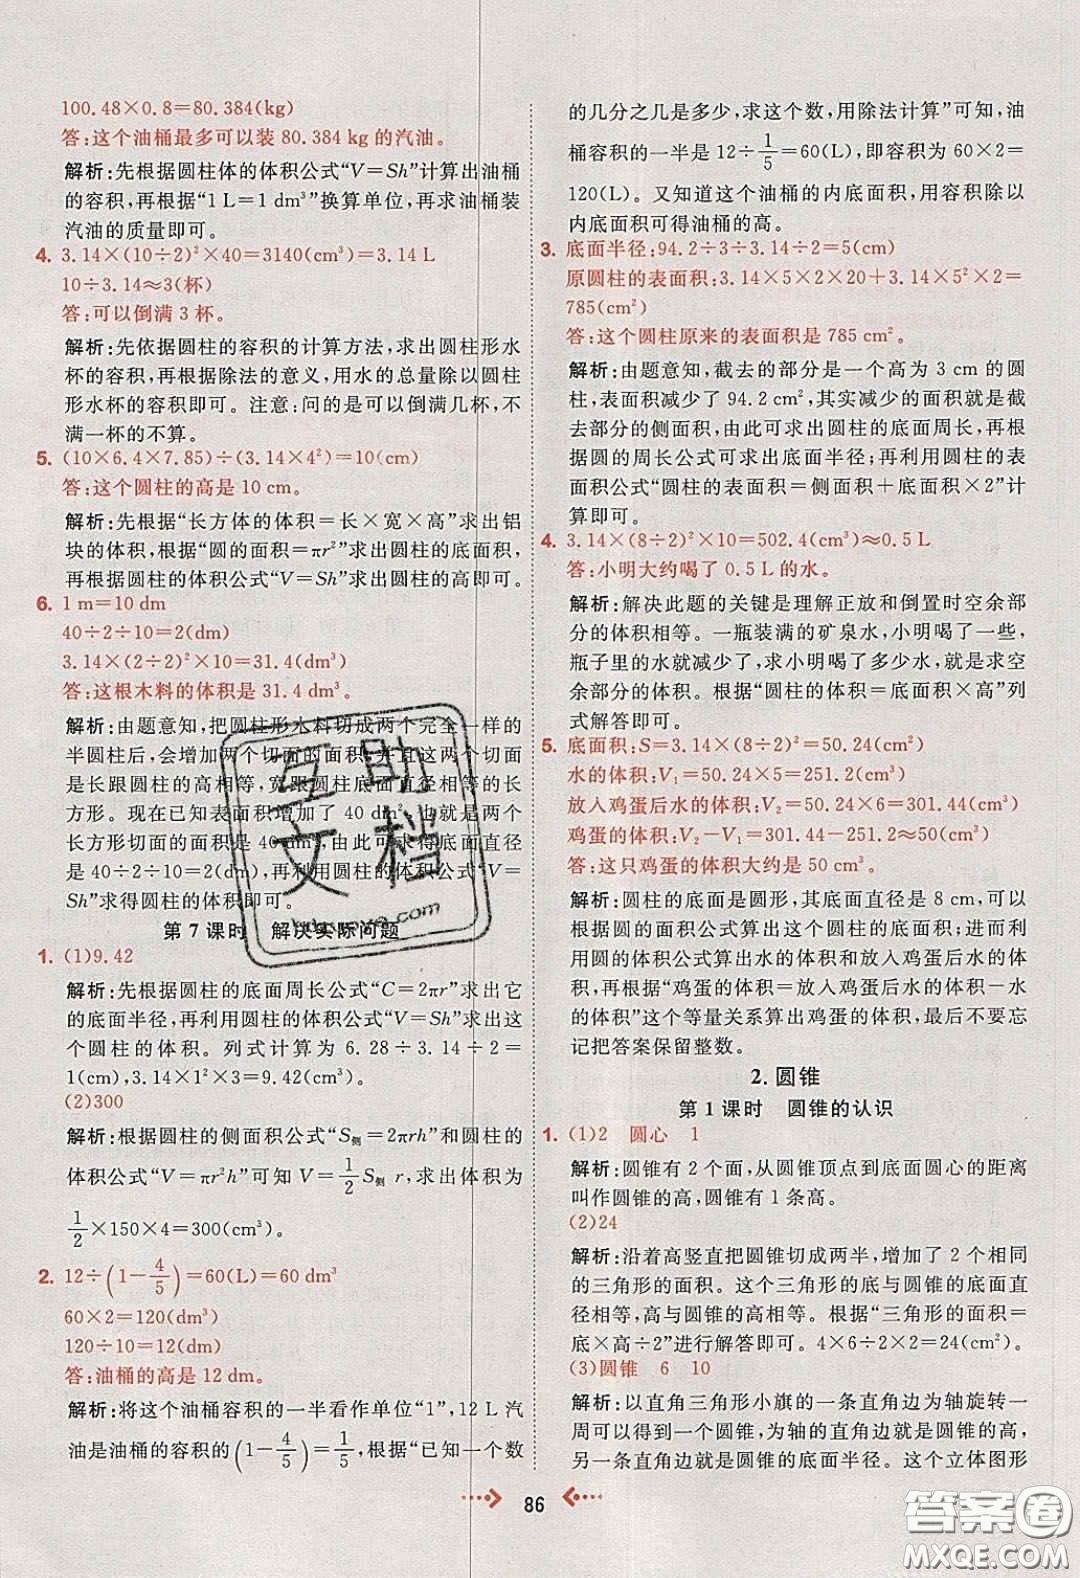 100.48×0.8=80.384(kg)
答:这个油桶最多可以装 80.384 kg 的汽油。
解析:先根据圆柱体的体积公式“V=Sh”计算出油桶
的容积,再根据“1 L=1 dm³”换算单位,再求油桶装
汽油的质量即可。
4. 3.14×(10÷2)²×40=3140(cm³)=3.14 L
10÷3.14≈3(杯)
答:可以倒满 3 杯。
解析:先依据圆柱的容积的计算方法,求出圆柱形水
杯的容积,再根据除法的意义,用水的总量除以圆柱
形水杯的容积即可。注意:问的是可以倒满几杯,不
满一杯的不算。
5. (10×6.4×7.85)÷(3.14×4²)=10(cm)
答:这个圆柱的高是 10 cm。
解析:先根据“长方体的体积=长×宽×高”求出铝
块的体积,再根据“圆的面积=πr²”求出圆柱的底面积,
再根据圆柱的体积公式“V=Sh”求出圆柱的高即可。
6. 1 m=10 dm
40÷2÷10=2(dm)
3.14×(2÷2)²×10=31.4(dm³)
答:这根木料的体积是 31.4 dm³。
解析:由题意知,把圆柱形木料切成两个完全一样的
半圆柱后,会增加两个切面的面积,并且这两个切面
是长跟圆柱的高相等,宽跟圆柱底面直径相等的长
方形。现在已知表面积增加了 40 dm²,也就是两个
长方形切面的面积是 40 dm²,那么圆柱的底面直径
是 40÷2÷10=2(dm),再利用圆柱的体积公式“V=
Sh”求得圆柱的体积即可。
第 7 课时 解决实际问题
1. (1)9.42
解析:先根据圆柱的底面周长公式“C=2πr”求出它
的底面半径,再利用圆柱的体积公式“V=Sh”求出这
个圆柱的体积。列式计算为 6.28÷3.14÷2=
1(cm),3.14×1²×3=9.42(cm³)。
(2)300
解析:根据圆柱的侧面积公式“S侧=2πrh”和圆柱的
体积公式“V=πr²h”可知 V=1/2 S侧 r,求出体积为
1/2×150×4=300(cm³)。
2. 12÷(1−4/5)=60(L)=60 dm³
60×2=120(dm³)
120÷10=12(dm)
答:油桶的高是 12 dm。
解析:将这个油桶容积的一半看作单位“1”,12 L 汽
油是油桶的容积的(1−4/5)=1/5,根据“已知一个数
的几分之几是多少,求这个数,用除法计算”可知,油
桶容积的一半是 12÷1/5=60(L),即容积为 60×2=
120(L)。又知道这个油桶的内底面积,用容积除以
内底面积可得油桶的高。
3. 底面半径:94.2÷3÷3.14÷2=5(cm)
原圆柱的表面积:3.14×5×2×20+3.14×5²×2=
785(cm²)
答:这个圆柱原来的表面积是 785 cm²。
解析:由题意知,截去的部分是一个高为 3 cm 的圆
柱,表面积减少了 94.2 cm²,其实减少的面积就是截
去部分的侧面积,由此可求出圆柱的底面周长,再根
据圆的周长公式可求出底面半径;再利用圆柱的表
面积公式“圆柱的表面积=侧面积+底面积×2”计
算即可。
4. 3.14×(8÷2)²×10=502.4(cm³)≈0.5 L
答:小明大约喝了 0.5 L 的水。
解析:解决此题的关键是理解正放和倒置时空余部
分的体积相等。一瓶装满的矿泉水,小明喝了一些,
瓶子里的水就减少,求小明喝了多少水,就是求空
余部分的体积。根据“圆柱的体积=底面积×高”列
式解答即可。
5. 底面积:S=3.14×(8÷2)²=50.24(cm²)
水的体积:V₁=50.24×5=251.2(cm³)
放入鸡蛋后水的体积:V₂=50.24×6=301.44(cm³)
鸡蛋的体积:V₂−V₁=301.44−251.2≈50(cm³)
答:这只鸡蛋的体积大约是 50 cm³。
解析:圆柱的底面是圆形,其底面直径是 8 cm,可以
根据圆的面积公式求出圆柱的底面积;进而利
用圆的体积公式算出水的体积和放入鸡蛋后水的体
积,再根据“鸡蛋的体积=放入鸡蛋后水的体积−水
的体积”这个等量关系算出鸡蛋的体积,最后不要忘
记把答案保留整数。
2. 圆锥
第 1 课时 圆锥的认识
1. (1)2 圆心 1
解析:圆锥有 2 个面,从圆锥顶点到底面圆心的距离
叫作圆锥的高,圆锥有 1 条高。
(2)24
解析:沿着高竖直把圆锥切成两半,增加了 2 个相同
的三角形的面积。这个三角形的底与圆锥的底面直
径相等,高与圆锥的高相等。根据“三角形的面积=
底×高÷2”进行解答即可。4×6÷2×2=24(cm²)。
(3)圆锥 6 10
解析:以直角三角形小旗的一条直角边为轴旋转一
周可以得到一个圆锥,为轴的直角边就是圆锥的高,
另一条直角边就是圆锥的底面半径。这个立体图形
86
互助
文档
答案圈
MXQE.COM